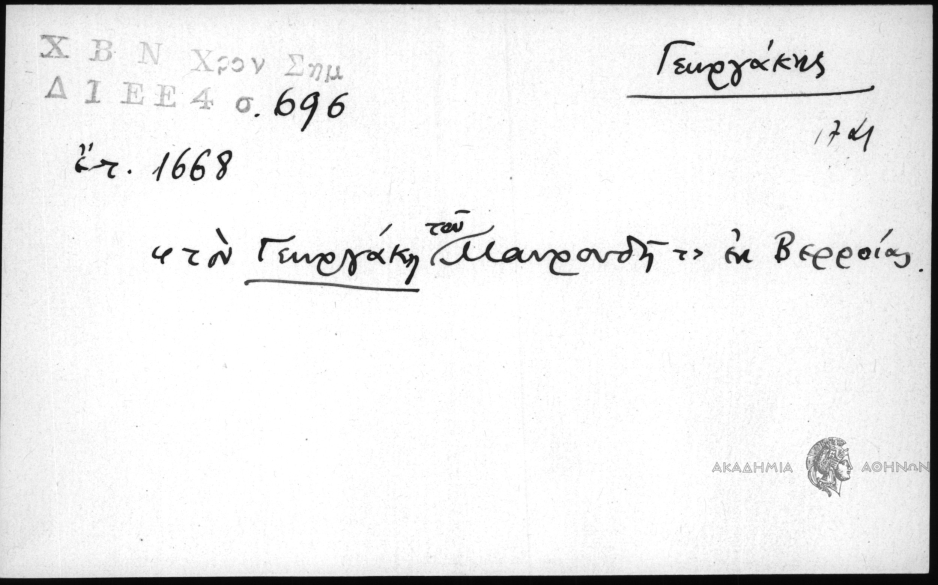 Χ Β Ν Χρον Σημ
Γεωργάκης
Δ Ι Ε Ε 4 σ. 696
ἔτ. 1668
«τὸν Γεωργάκη τοῦ Μαυρουδῆ» ἐκ Βερροίας.
ΑΚΑΔΗΜΙΑ ΑΘΗΝΩΝ